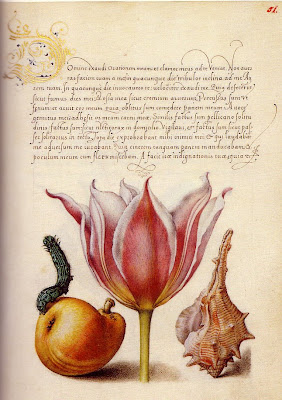 51.
Domine exaudi orationem meam et clamor meus ad te veniat. Non aver
tas faciem tuam a me: in quacunque die tribulor inclina ad me au
rem tuam. In quacunque die invocavero te: velociter exaudi me. Quia defecerunt
sicut fumus dies mei: & ossa mea sicut cremium aruerunt. Percussus sum ut
foenum et aruit cor meum: quia oblitus sum comedere panem meum. A voce
gemitus mei adhesit os meum carni meae. Similis factus sum pellicano solitu
dinis: factus sum sicut nicticorax in domicilio. Vigilavi, et factus sum sicut pas
ser in tecto. Tota die exprobrabant mihi inimici mei: et qui laudabant
me adversum me iurabant. Quia cinerem tanquam panem manducabam, et
poculum meum cum fletu miscebam. A facie irae indignationis tuae quia